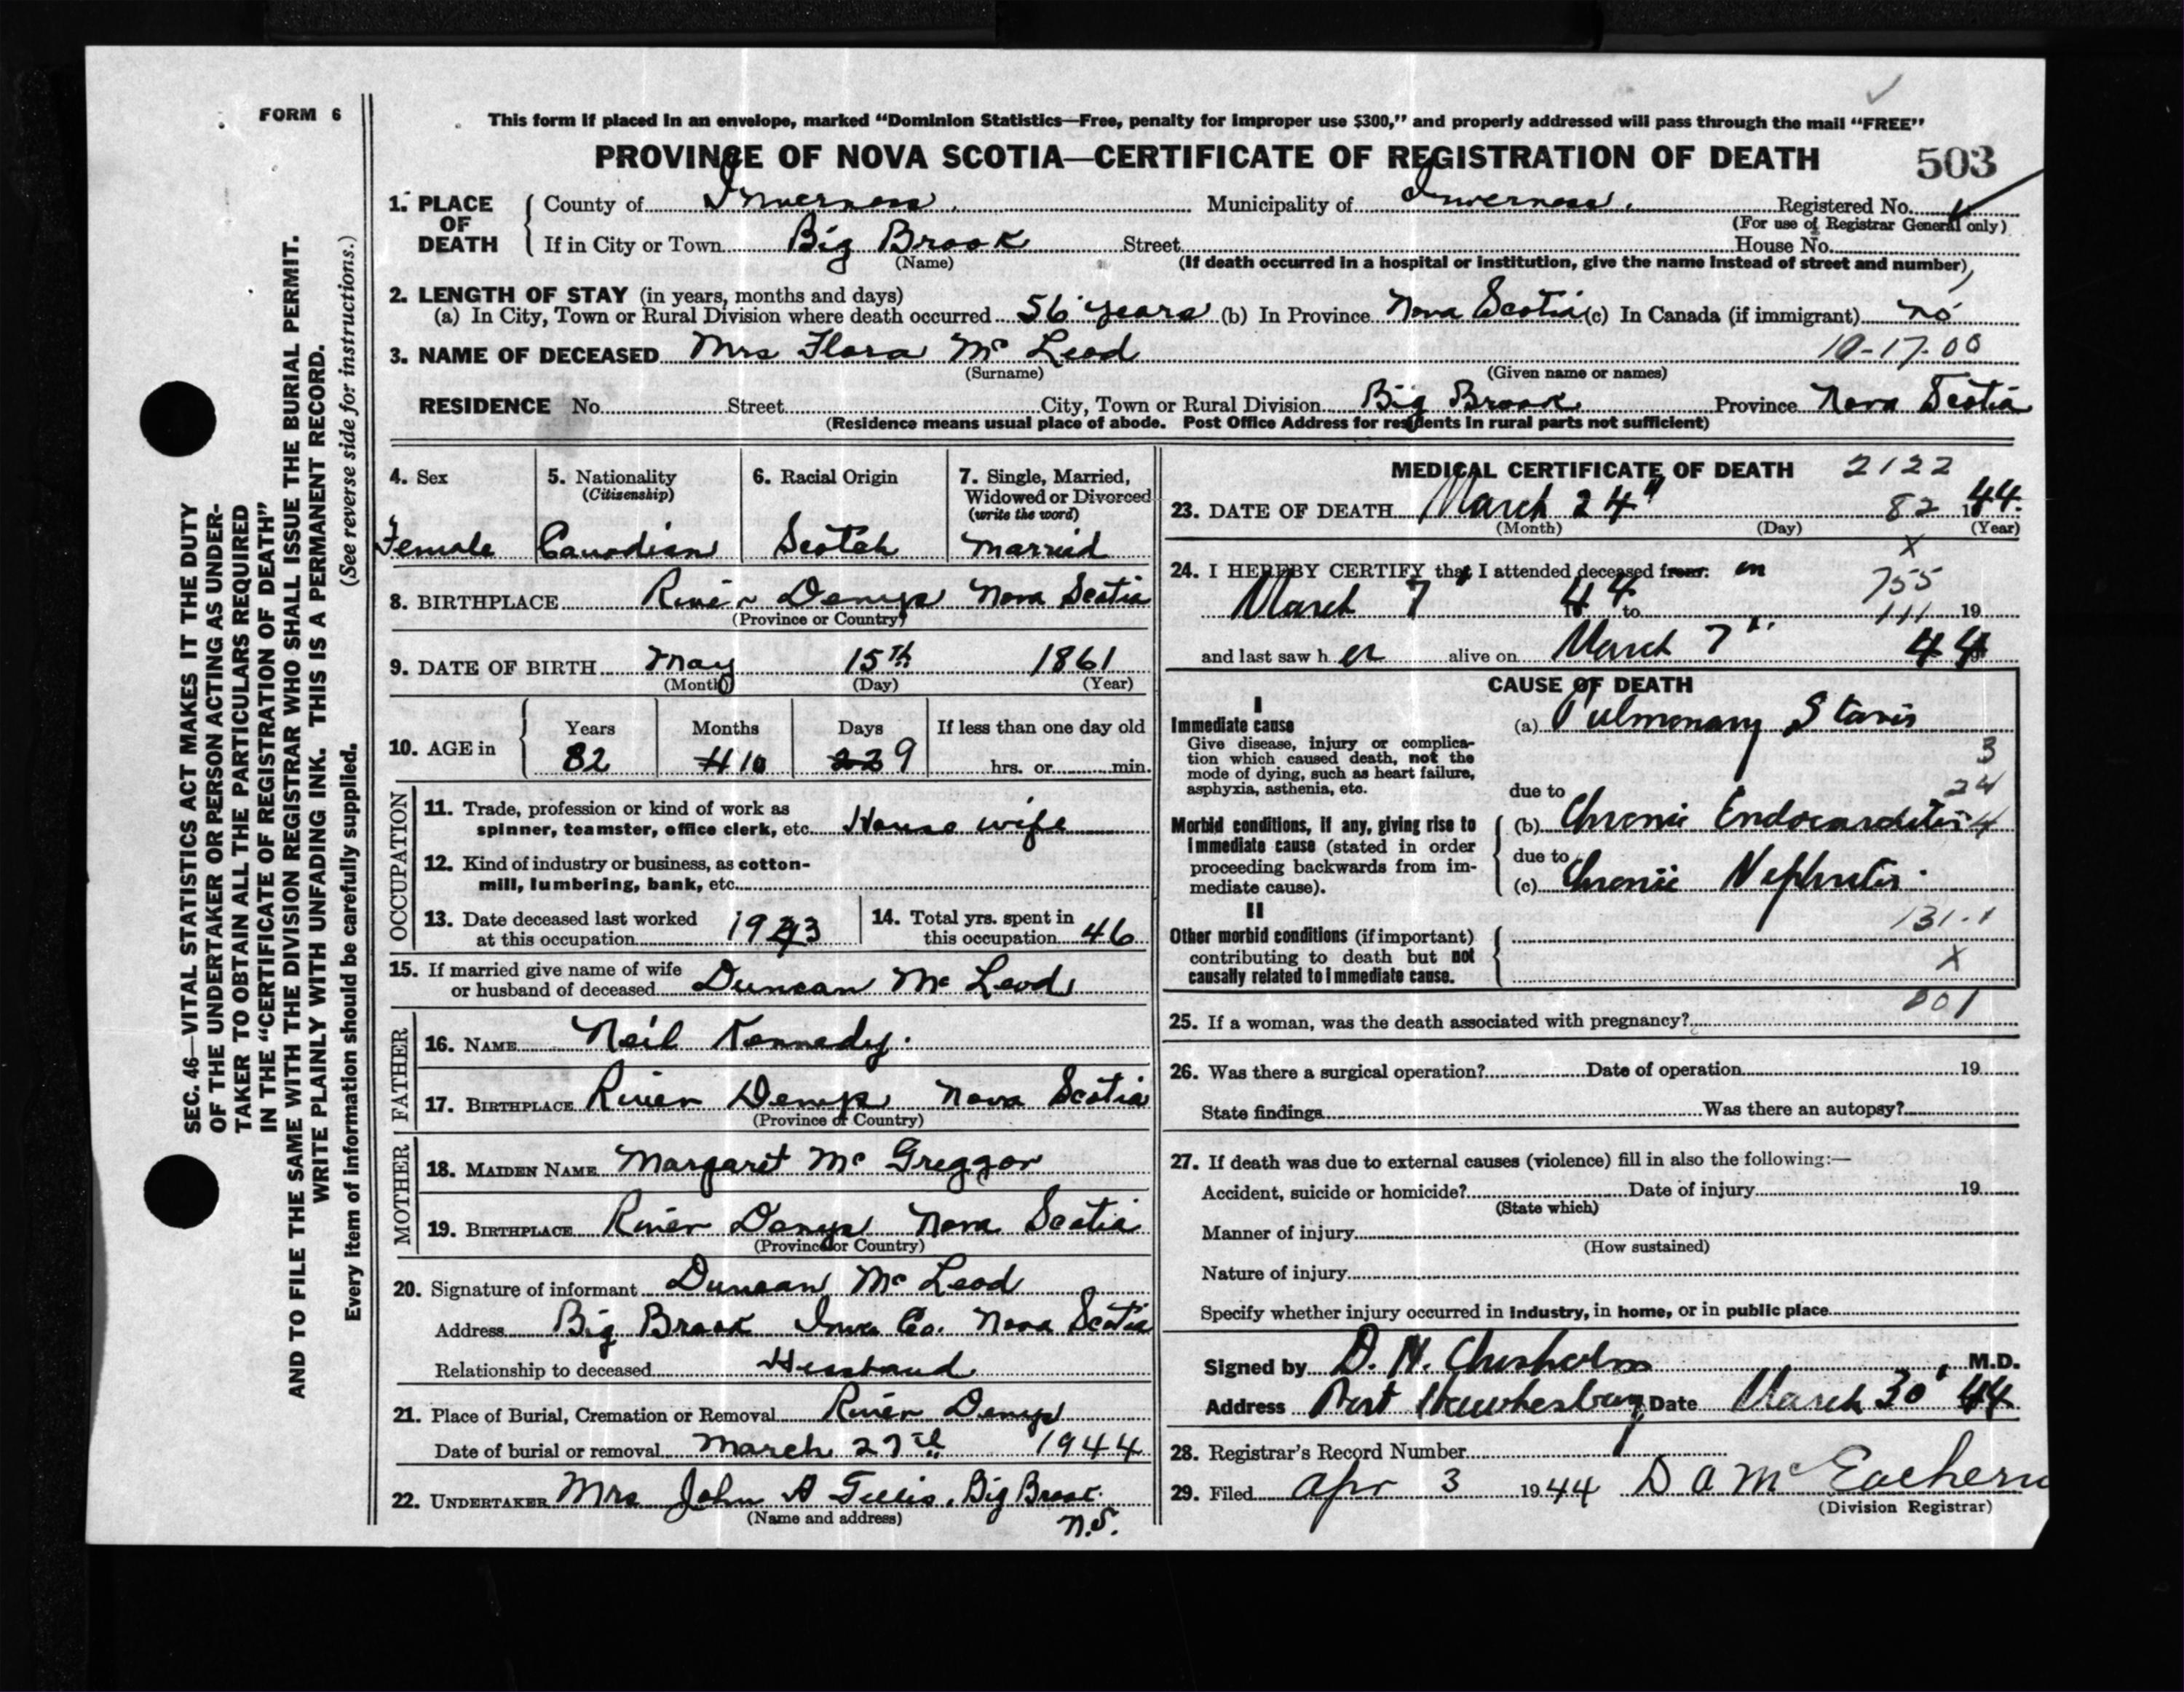 FORM 6
This form if placed in an envelope, marked “Dominion Statistics—Free, penalty for improper use $300,” and properly addressed will pass through the mail “FREE”
PROVINCE OF NOVA SCOTIA—CERTIFICATE OF REGISTRATION OF DEATH 503
1. PLACE OF DEATH County of Inverness. Municipality of Inverness. Registered No.
(For use of Registrar General only)
If in City or Town Big Brook Street House No.
(Name) (If death occurred in a hospital or institution, give the name instead of street and number)
2. LENGTH OF STAY (in years, months and days)
(a) In City, Town or Rural Division where death occurred 56 years (b) In Province Nova Scotia (c) In Canada (if immigrant) no
3. NAME OF DECEASED Mrs Flora Mc Leod 10-17-00
(Surname) (Given name or names)
RESIDENCE No. Street City, Town or Rural Division Big Brook Province Nova Scotia
(Residence means usual place of abode. Post Office Address for residents in rural parts not sufficient)
4. Sex 5. Nationality (Citizenship) 6. Racial Origin 7. Single, Married, Widowed or Divorced (write the word)
Female Canadian Scotch Married
8. BIRTHPLACE River Denys Nova Scotia
(Province or Country)
9. DATE OF BIRTH May 15th 1861
(Month) (Day) (Year)
10. AGE in Years Months Days If less than one day old
82 4 10 22 9 hrs. or min.
OCCUPATION
11. Trade, profession or kind of work as
spinner, teamster, office clerk, etc. House wife
12. Kind of industry or business, as cotton-
mill, lumbering, bank, etc.
13. Date deceased last worked
at this occupation 1943
14. Total yrs. spent in
this occupation 46
15. If married give name of wife
or husband of deceased Duncan Mc Leod
FATHER
16. NAME Neil Kennedy.
17. BIRTHPLACE River Denys Nova Scotia
(Province or Country)
MOTHER
18. MAIDEN NAME Margaret Mc Greggor
19. BIRTHPLACE River Denys Nova Scotia
(Province or Country)
20. Signature of informant Duncan Mc Leod
Address Big Brook Inver Co. Nova Scotia
Relationship to deceased Husband
21. Place of Burial, Cremation or Removal River Denys
Date of burial or removal March 27th 1944
22. UNDERTAKER Mrs John A Gillis, Big Brook.
(Name and address) N.S.
MEDICAL CERTIFICATE OF DEATH 2122
23. DATE OF DEATH March 24" 82 1944.
(Month) (Day) (Year)
X
24. I HEREBY CERTIFY that I attended deceased from: on 755
March 7" 44 to 111 19
and last saw her alive on March 7" 44
CAUSE OF DEATH
I
Immediate cause (a) Pulmonary Stasis
Give disease, injury or complica-
tion which caused death, not the
mode of dying, such as heart failure,
asphyxia, asthenia, etc.
3
24
due to
Morbid conditions, if any, giving rise to (b) Chronic Endocarditis 4
immediate cause (stated in order
proceeding backwards from im-
mediate cause).
due to
(c) Chronic Nephritis.
II 131-1
Other morbid conditions (if important)
contributing to death but not X
causally related to immediate cause.
001
25. If a woman, was the death associated with pregnancy?
26. Was there a surgical operation? Date of operation 19
State findings Was there an autopsy?
27. If death was due to external causes (violence) fill in also the following:—
Accident, suicide or homicide? Date of injury 19
(State which)
Manner of injury
(How sustained)
Nature of injury
Specify whether injury occurred in industry, in home, or in public place
Signed by D. N. Chisholm, M.D.
Address Port Hawkesbury Date March 30 44
28. Registrar's Record Number 1
29. Filed Apr 3 1944 D A Mc Eachern
(Division Registrar)
SEC. 46—VITAL STATISTICS ACT MAKES IT THE DUTY
OF THE UNDERTAKER OR PERSON ACTING AS UNDER-
TAKER TO OBTAIN ALL THE PARTICULARS REQUIRED
IN THE “CERTIFICATE OF REGISTRATION OF DEATH”
AND TO FILE THE SAME WITH THE DIVISION REGISTRAR WHO SHALL ISSUE THE BURIAL PERMIT.
WRITE PLAINLY WITH UNFADING INK. THIS IS A PERMANENT RECORD.
Every item of information should be carefully supplied. (See reverse side for instructions.)